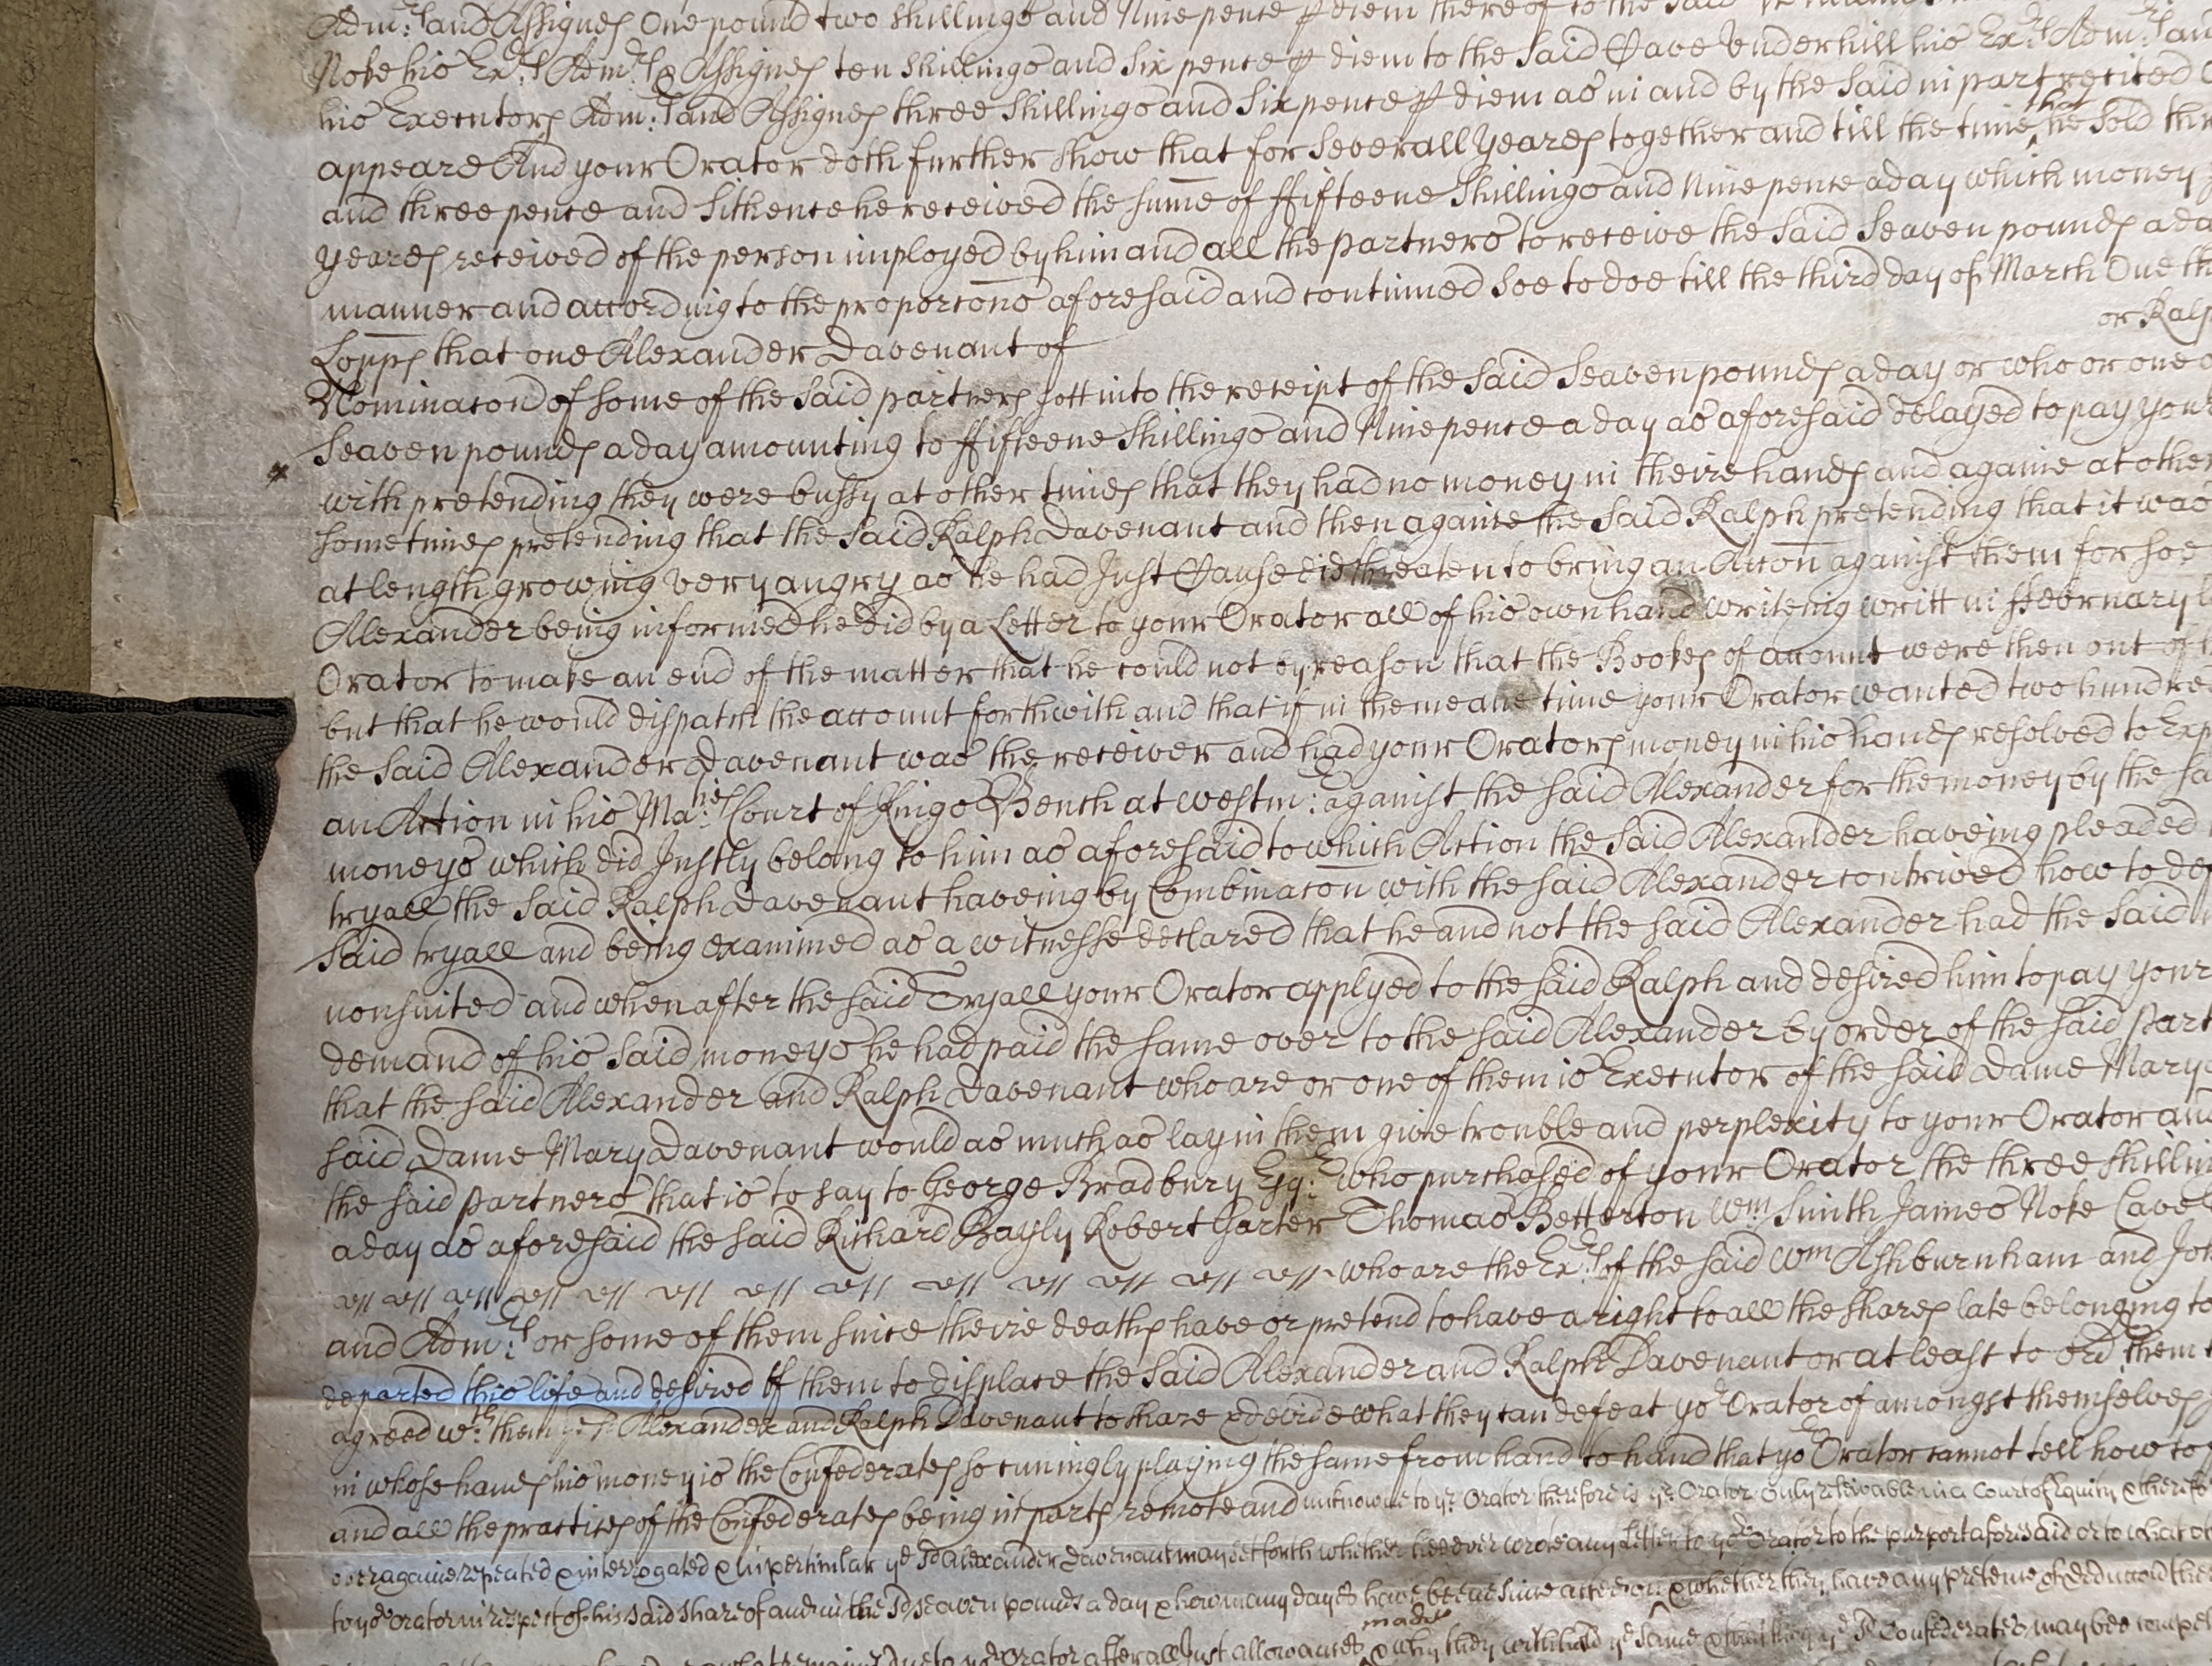 Adm:rs and Assignes One pound two shillings and Nine pence ⅌ diem thereof to the said
Noke his Exrs Adm:rs & Assignes ten shillings and six pence ⅌ diem to the said Cave Underhill his Exrs Adm:rs an
his Executors Adm:rs and Assignes three shillings and sixpence ⅌ diem as in and by the said in part recited
appeare And your Orator doth further show that for severall yeares together and till the time that he sold thr
and three pence and sithence he received the sume of ffifteene shillings and Nine pence a day which money
yeares received of the person imployed by him and all the partners to receive the said Seaven pounds a da
manner and according to the proporcons aforesaid and continued soe to doe till the third day of March One th
or Ralp
Lopps that one Alexander Davenant of
Nominacon of some of the said partners gott into the receipt of the said Seaven pounds a day or who or one o
Seaven pounds a day amounting to ffifteene shillings and Nine pence a day as aforesaid delayed to pay your
with pretending they were bussy at other times that they had no money in theire hands and againe at other
sometimes pretending that the said Ralph Davenant and then againe the said Ralph pretending that it was
at length growing very angry as he had Just Cause did threaten to bring an Accon against them for soe
Alexander being informed he did by a Letter to your Orator all of his own hand writeing writt in ffebruary
Orator to make an end of the matter that he could not by reason that the Bookes of account were then out of
but that he would dispatch the account forthwith and that if in the meane time your Orator wanted two hundre
the said Alexander Davenant was the receiver and had your Orators money in his hands resolved to Exp
an Action in his Ma:ties Court of Kings Bench at Westm:r against the said Alexander for the money by the sa
moneys which did Justly belong to him as aforesaid to which Action the said Alexander haveing pleaded
tryall the said Ralph Davenant haveing by Combinacon with the said Alexander contrived how to def
said tryall and being examined as a witnesse declared that he and not the said Alexander had the said
nonsuited and when after the said Tryall your Orator applyed to the said Ralph and desired him to pay your
demand of his said moneys he had paid the same over to the said Alexander by order of the said Part
that the said Alexander and Ralph Davenant who are or one of them is Executor of the said Dame Mary
said Dame Mary Davenant would as much as lay in them give trouble and perplexity to your Orator and
the said partners that is to say to George Bradbury Esq:r who purchased of your Orator the three shilling
a day as aforesaid the said Richard Bayly Robert Harter Thomas Betterton Wm Smith James Noke Cave
who are the Ex:rs of the said Wm Ashburnham and Jo
and Adm:rs or some of them since theire deaths have or pretend to have a right to all the shares late belonging to
departed this life and desired of them to displace the said Alexander and Ralph Davenant or at least to ord them
agreed w:th them ye sd Alexander and Ralph Davenant to share & devide what they can defeat yor Orator of amongst themselves
in whose hands his money is the Confederates so cuningly playing the same from hand to hand that yor Orator cannot tell how to
and all the practices of the Confederates being in parts remote and unknowne to yr Orator therefore is yr Orator only releivable in a Court of Equity & therefo
over againe repeated & interrogated & in perticular ye sd Alexander Davenant may set forth whether hee ever wrote any Letter to yor Orator to the purport aforesaid or to what
to yor Orator in respect of his said share of and in the sd seaven pounds a day & how many dayes have beene since & whether they have any pretence of
made
what remaines due to yor Orator after all Just allowances & why they withhold ye same & that they ye sd Confederates may bee compe